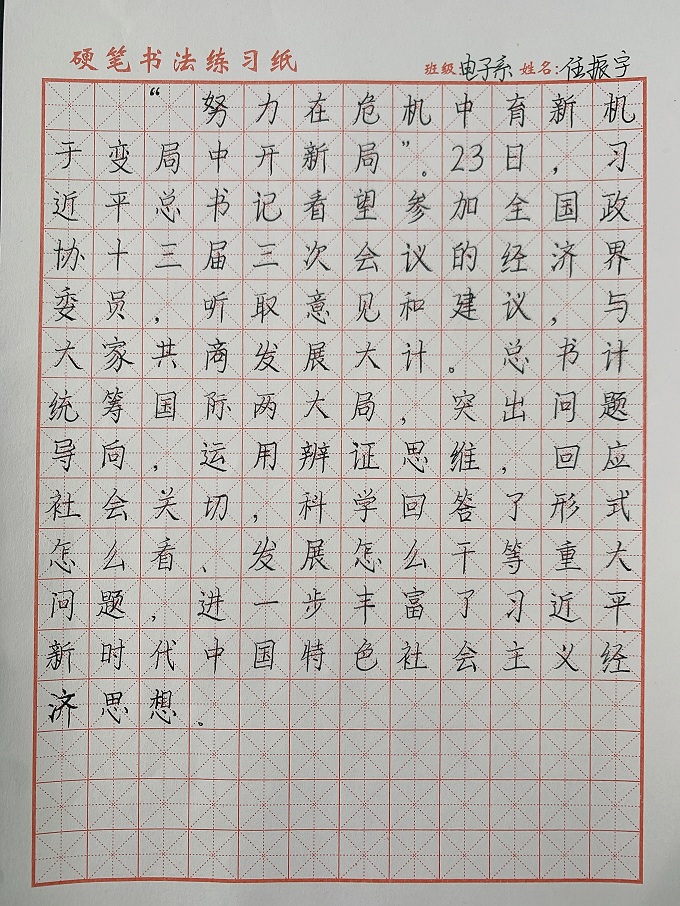 硬笔书法练习纸 班级 电子系 姓名: 任振宇
“努力在危机中育新机
于变局中开新局”。23日，习
近平总书记看望参加全国政
协十三届三次会议的经济界
委员，听取意见和建议，与
大家共商发展大计。总书计
统筹国际两大局，突出问题
导向，运用辨证思维，回应
社会关切，科学回答了形式
怎么看、发展怎么干等重大
问题，进一步丰富了习近平
新时代中国特色社会主义经
济思想。